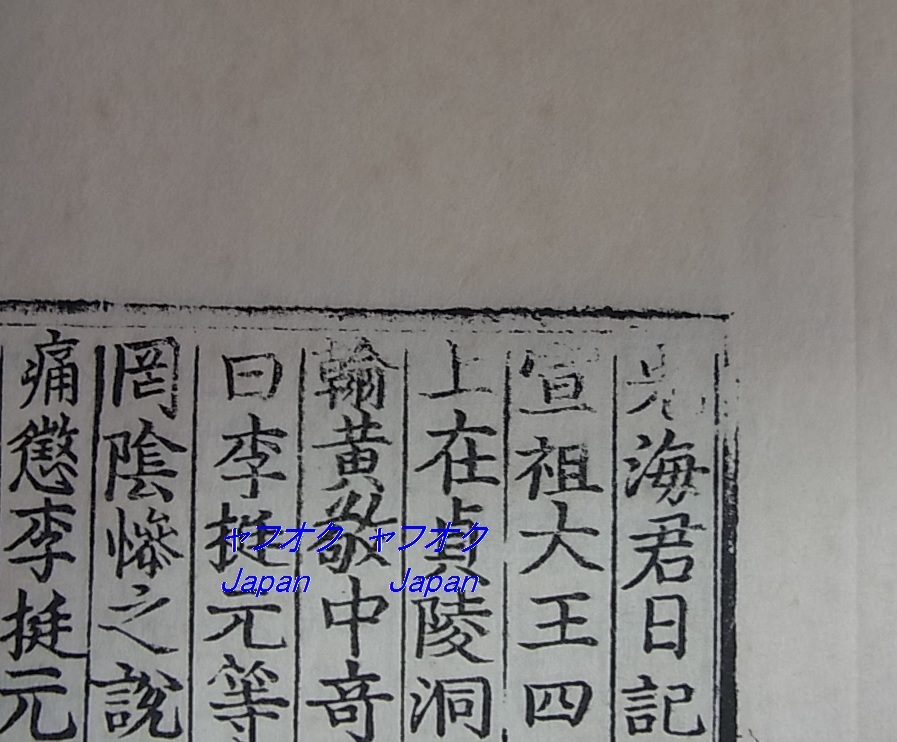 光海君日記
宣祖大王四
上在貞陵洞
翰黃敬中奇
曰李挺元等
罔陰慘之說
痛懲李挺元
ャフオク ャフオク
Japan Japan